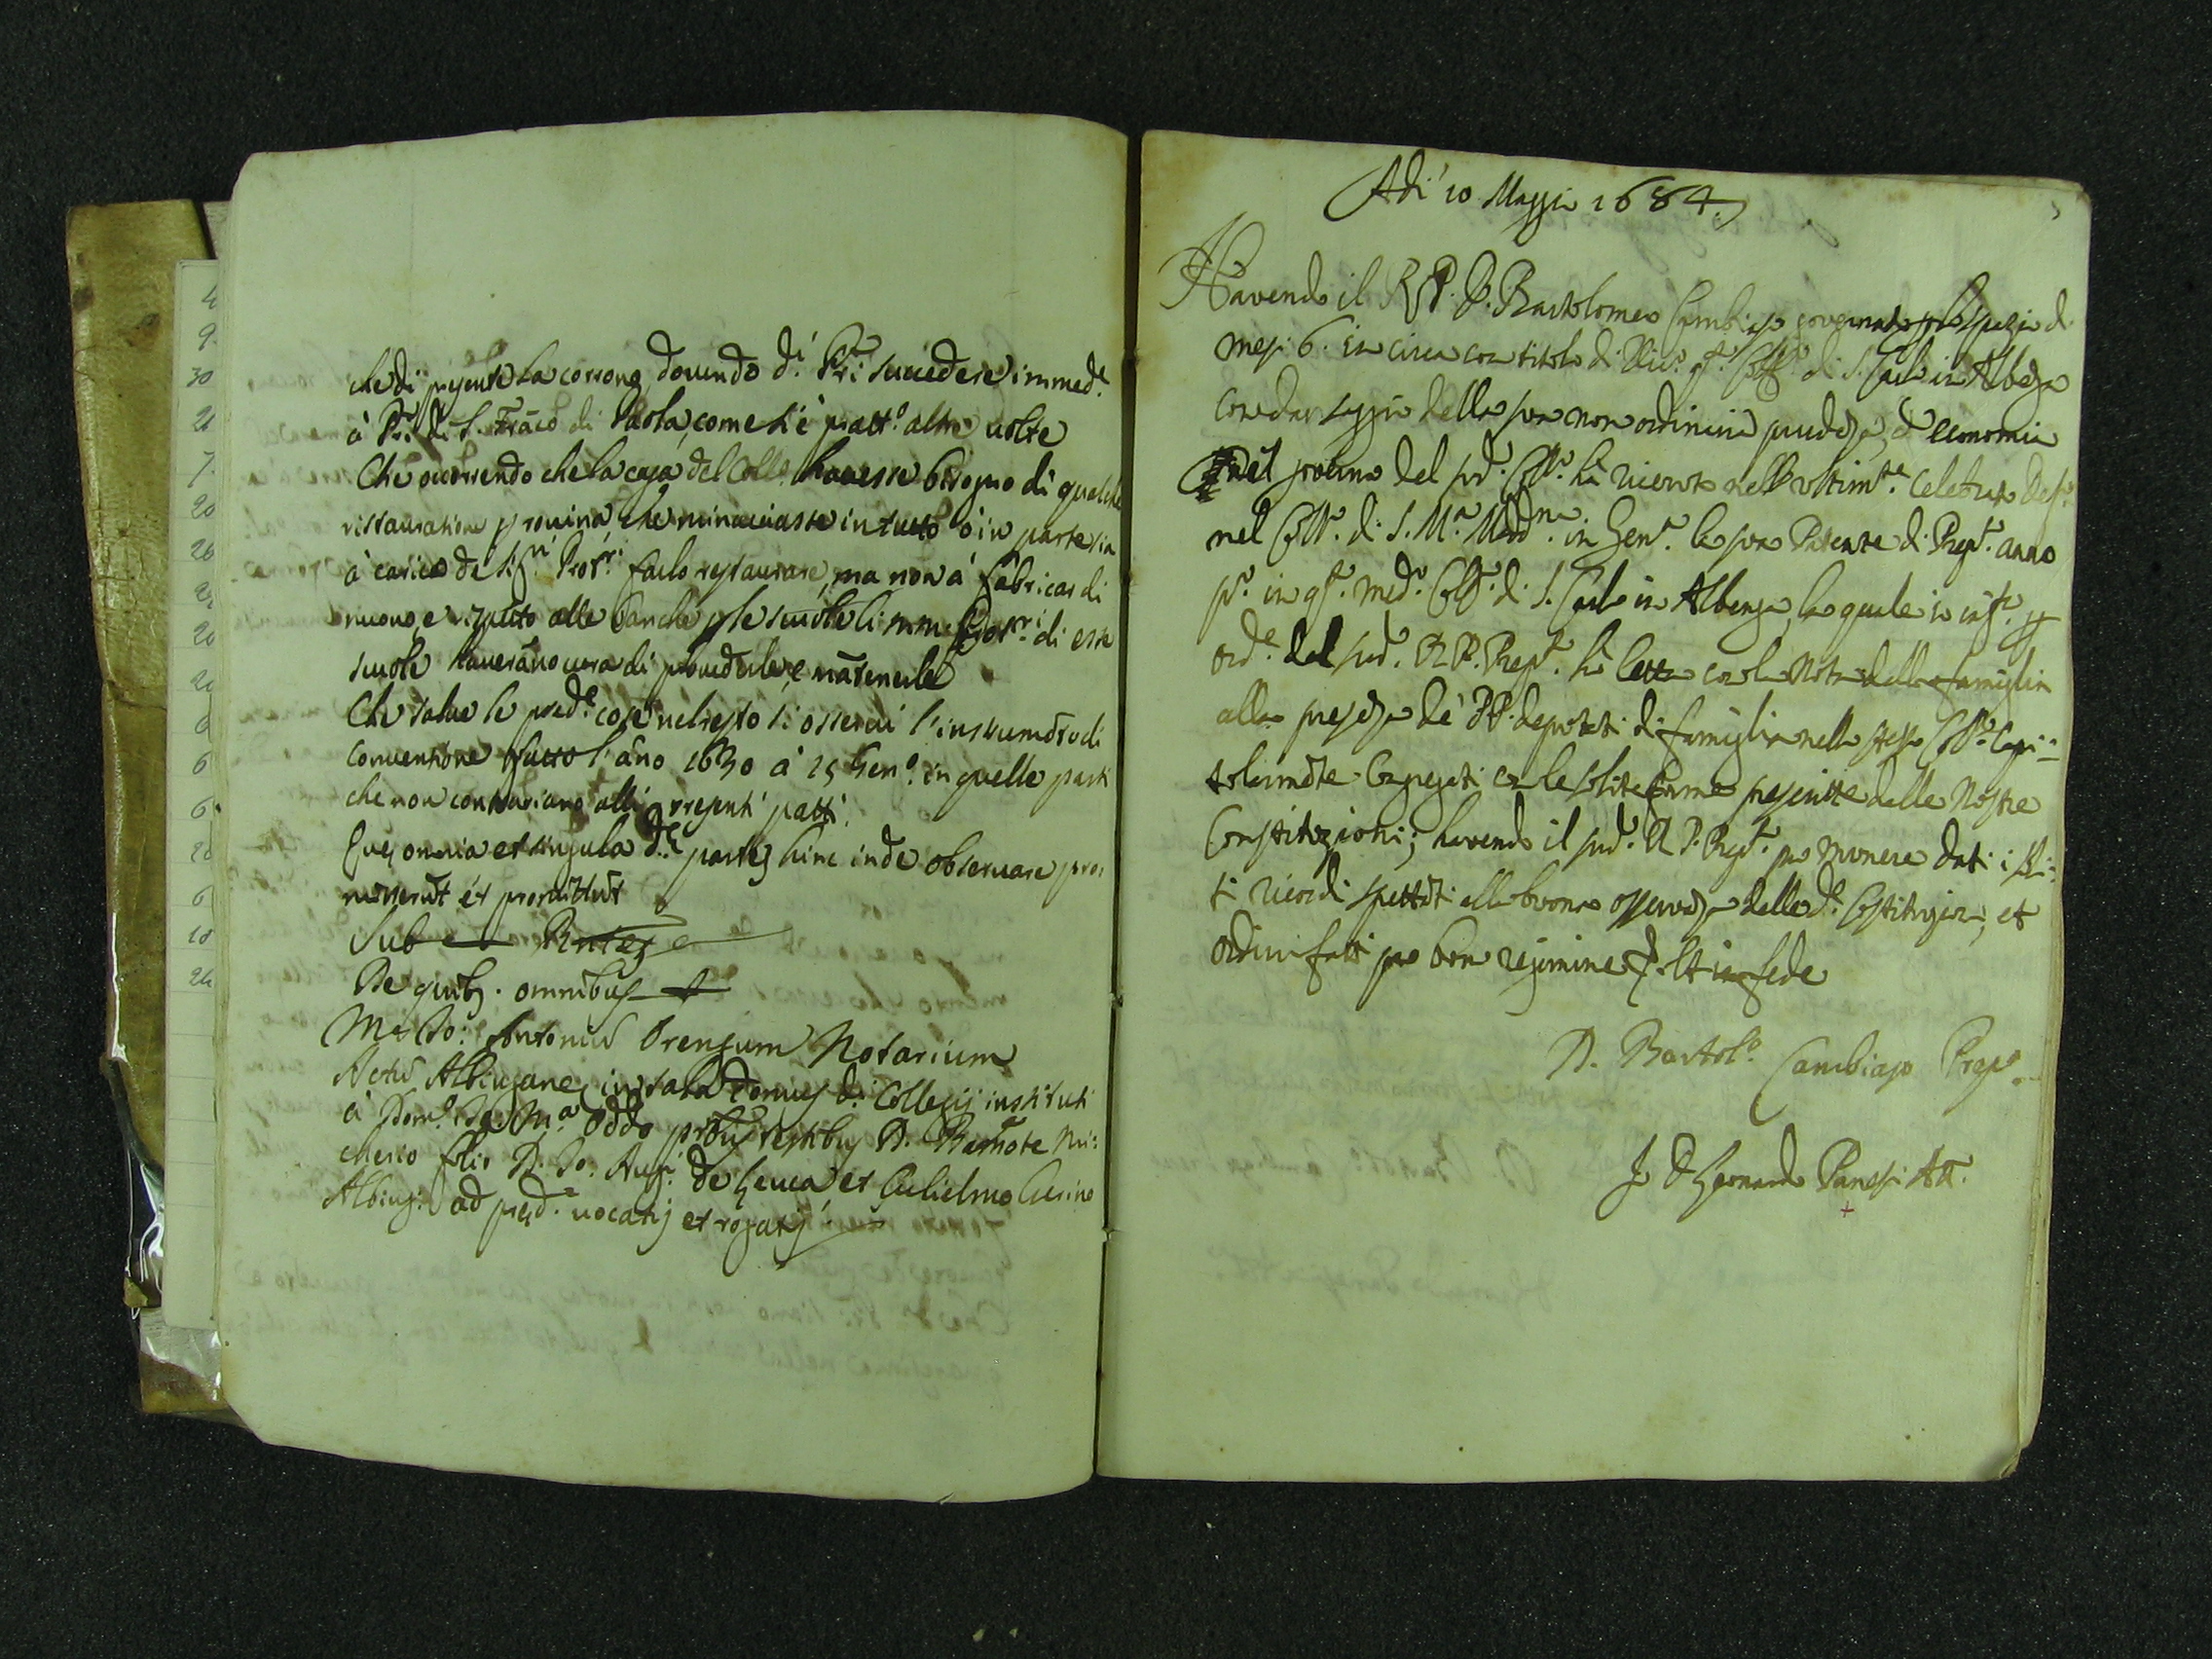 4
9.
30
21
7.
20
20
20
20
6
6
6
20
6
10
24
che di presente ha corrono dovendo d.i P.ri succedere immed.e
à P.ri di S. Frāco di Paola, come si è pratt.o altre uolte
Che occorrendo che la casa del Coll.o hauesse bisogno di qualche
ristauratione p rouina che minacciasse in tutto ò in parte sia
à carico de Sig.ri Prot.ri farlo restaurare, ma non à fabricar di
nuouo, e rispetto alle banche p le scuole li mm Prot.ri di esse
scuole haueranno cura di prouederle, e mātenerle
Che salue le pred.e cose nel resto si osserui l'instrumēto di
conuentione fatto l'año 1630 à 15 Gen.o in quelle parti
che non contrariano alli presenti patti.
Quę omnia et singula d.ę partes hinc inde obseruare pro:
miserūt et promittūt
Sub Rntez
De quib9. omnibus
Me Io: Antonium Orengum Notarium
Actū Albinganę in sala domus d.i Collegij instituti
à Dom.o Io. M.a Oddo prõtibus testibus D. Bernote Ni:
cherio filio D. Io. Aug.i de Genua et Gulielmo
Albing: ad pręd.a uocatis et rogatis
Adi 10 Maggio 1684.
Havendo il R P. D. Bartolomeo Cambiaso governato p lo spazio di
mesi 6. in circa con titolo di Vic.o q.to Coll.o di S. Carlo in Albenga
con dar saggio della sua non ordinaria prudēza, et economia
nel governo del sud.o Coll.o hà ricevuto nell'ultim.te celebrato Def.o
nel Coll.o di S. M.a Madd.na in Gen.a la sua Patente di Prep.to anno
p.o in q.to med.o Coll.o di S. Carlo in Albenga, la quale io inf.to p
ord.e del sud.o R P. Prep.to hò letta con la Nota della famiglia
alla presēza de' PP. deputati di famiglia nello stesso Coll.o Capi:
tolarmēte Cõgregati con le solite forme prescritte dalle Nostre
Constitutioni; havendo il sud.o R P. Prep.to pro munere dati i soli:
ti ricordi spettãti alla buona osservãza delle d.e Costitutioni, et
ordini fatti pro bono regimine &. Et in fede
D. Bartol.o Cambiaso Prep.o
Io D Gernardo Panesi Att.
+